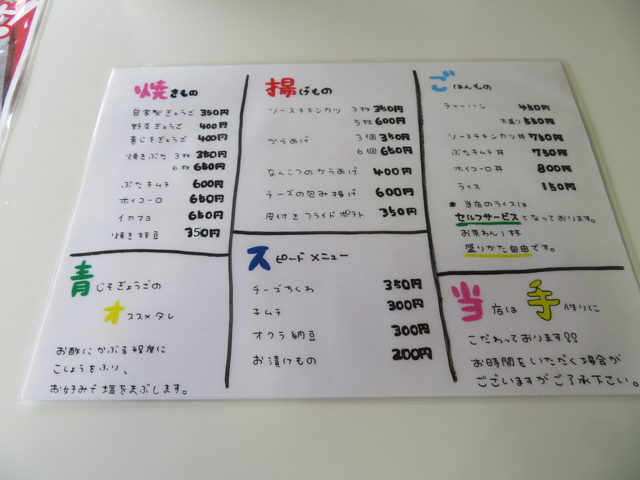 焼きもの
自家製ぎょうざ 350円
野菜ぎょうざ 400円
青じそぎょうざ 400円
焼きぶた 3枚 350円
6枚 650円
ぶたキムチ 600円
ホイコーロ 650円
イカマヨ 650円
焼き枝豆 350円
揚げもの
ソースチキンカツ 3枚 350円
5枚 600円
からあげ 3個 350円
6個 650円
なんこつのからあげ 400円
チーズの包み揚げ 600円
皮付きフライドポテト 350円
ごはんもの
チャーハン 450円
大盛り 550円
ソースチキンカツ丼 750円
ぶたキムチ丼 750円
ホイコーロ丼 800円
ライス 150円
* 当店のライスは
セルフサービスとなっております。
お茶わん1杯
盛りかた自由です。
青じそぎょうざの
オススメタレ
お酢にかぶる程度に
こしょうをふり、
お好みで塩を足します。
スピードメニュー
チーズちくわ 350円
キムチ 300円
オクラ納豆 300円
お漬けもの 200円
当店は手作りに
こだわっております!!
お時間をいただく場合が
ございますがご了承下さい。